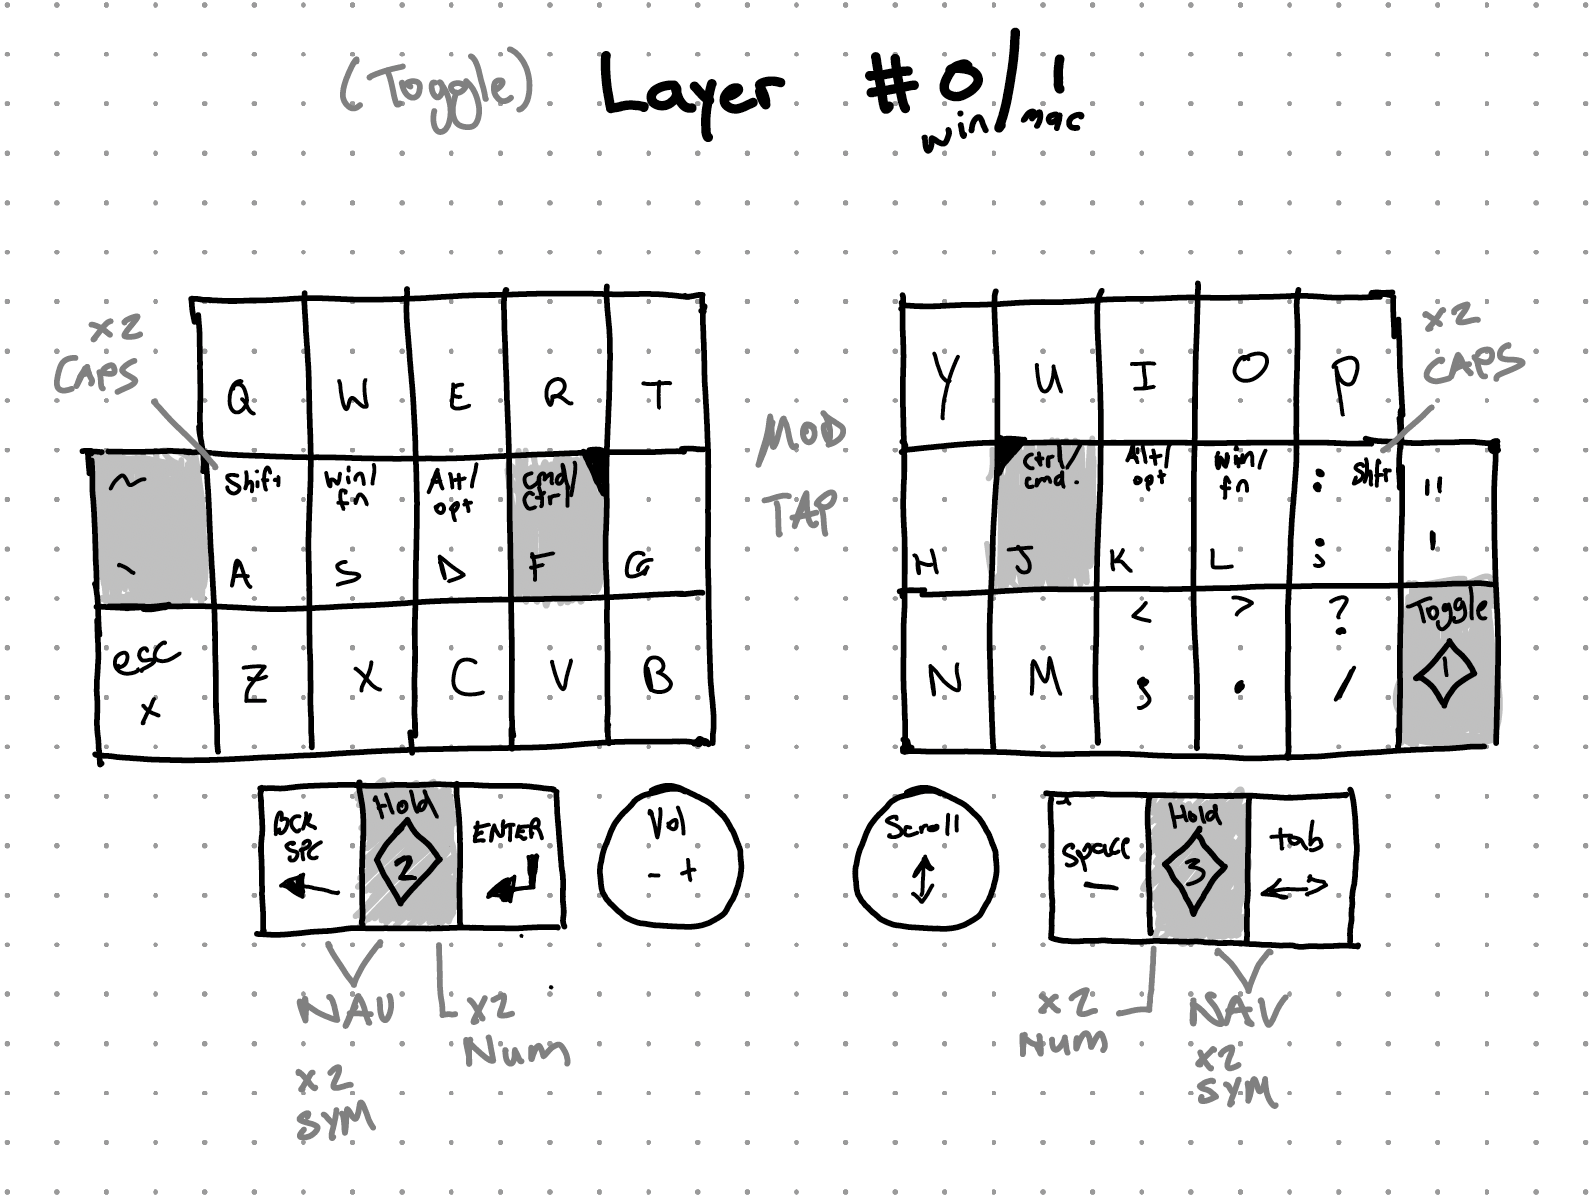 (Toggle) Layer #0/1
win/mac
x2
CAPS
Q W E R T
~ Shift win/fn Alt/opt cmd/ctrl
` A S D F G
esc
x
Z X C V B
MOD
TAP
x2
CAPS
Y U I O P
ctrl/cmd. Alt/opt win/fn : Shft "
H J K L ; '
< > ? Toggle
N M , . / 1
BCK
SPC
Hold
2
ENTER
Vol
- +
Scroll
space
Hold
3
tab
NAV
x2
SYM
x2
Num
x2
Num
NAV
x2
SYM